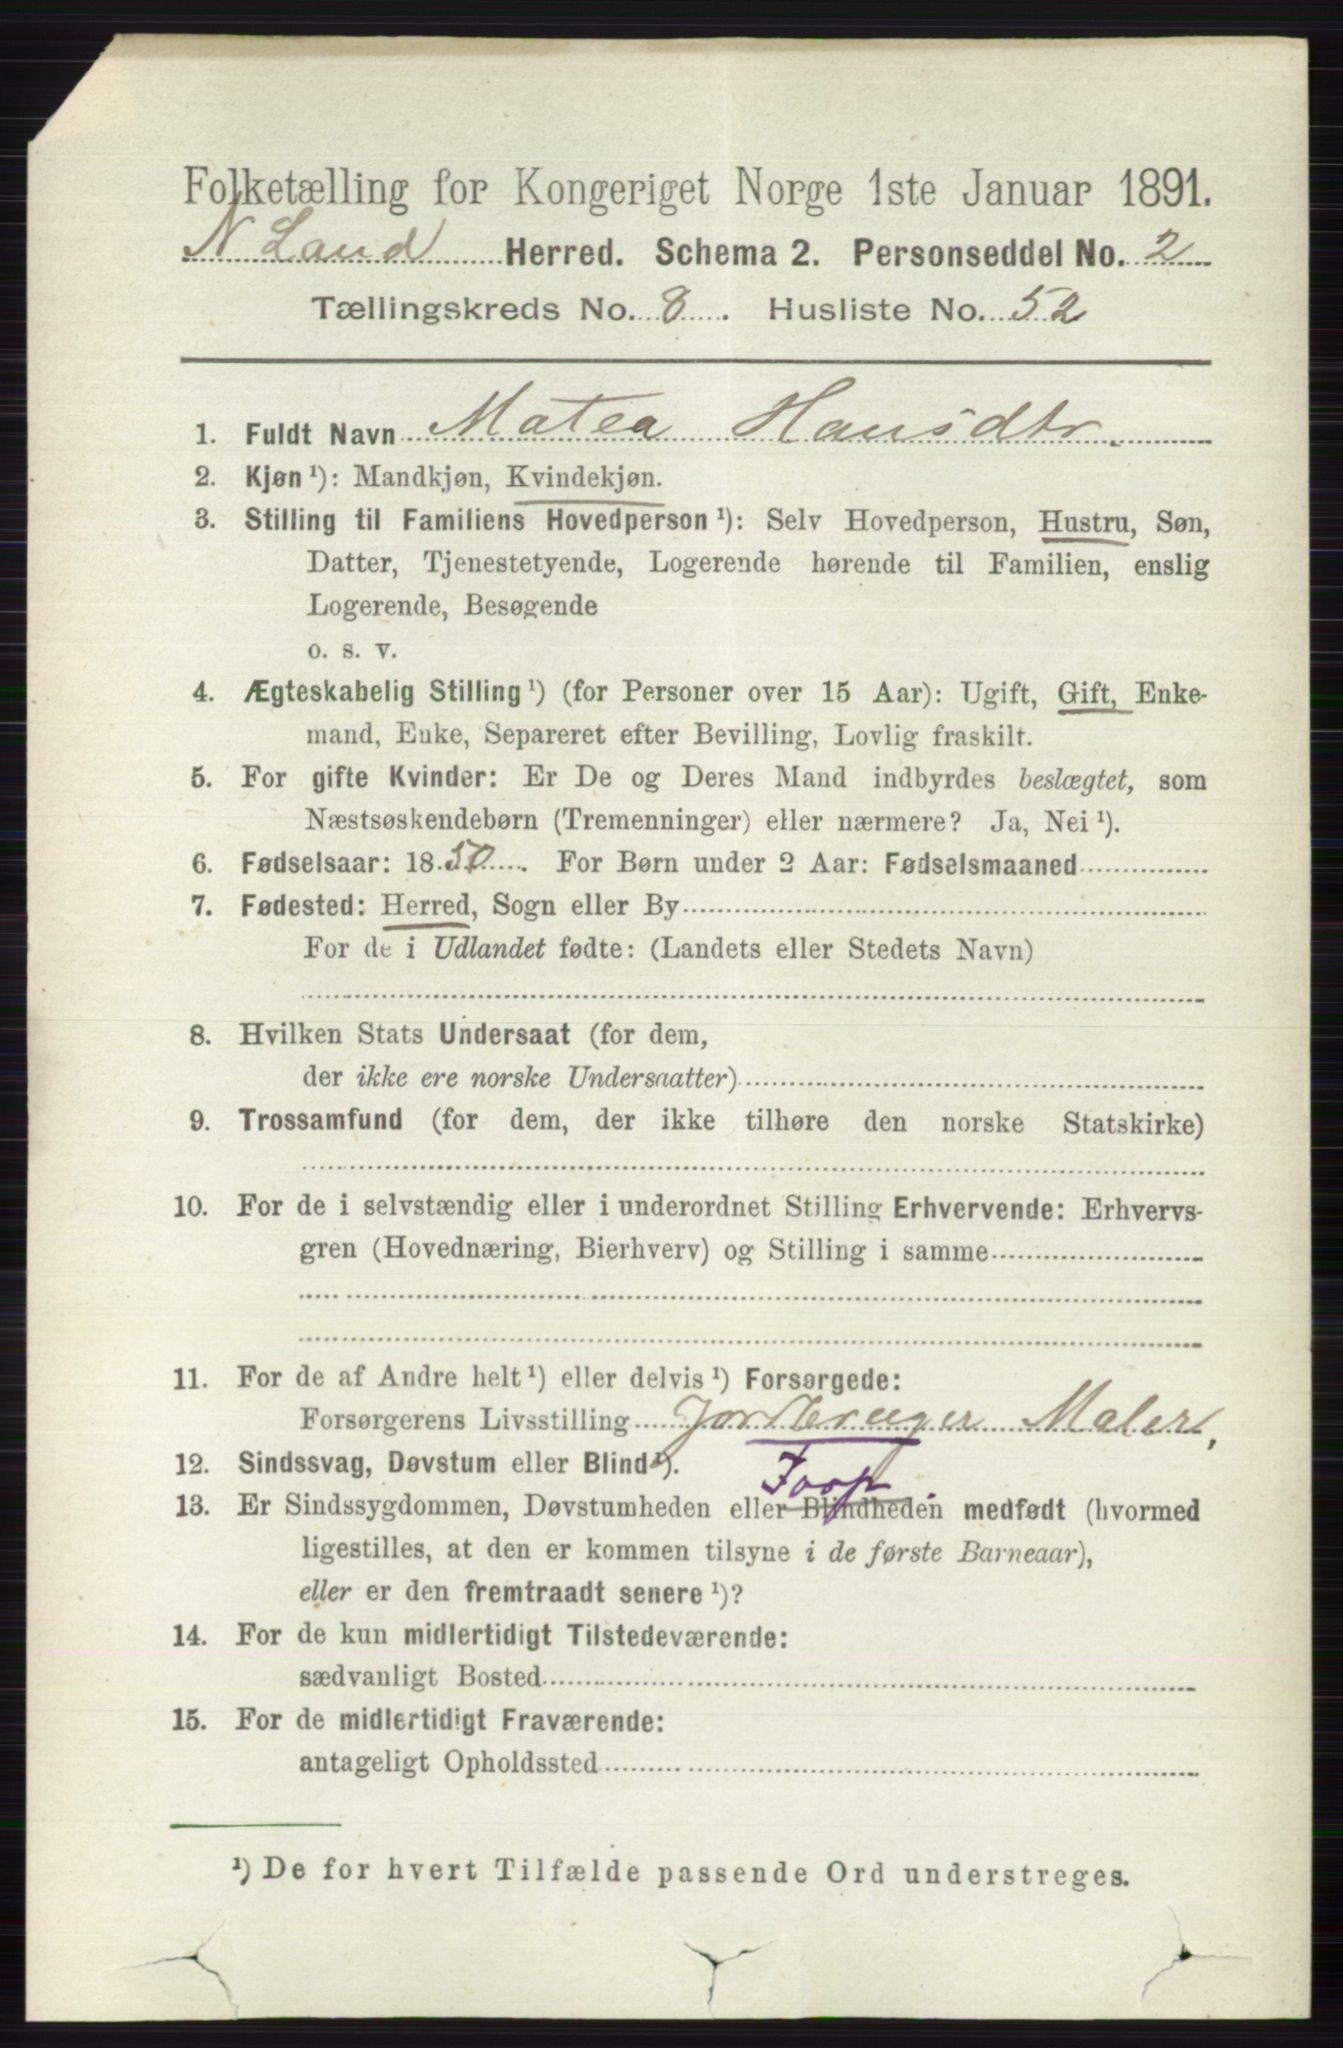 Folketælling for Kongeriget Norge 1ste Januar 1891.
N Land Herred. Schema 2. Personseddel No. 2
Tællingskreds No. 8. Husliste No. 52
1. Fuldt Navn Matea Hansdtr.
2. Kjøn¹): Mandkjøn, Kvindekjøn.
3. Stilling til Familiens Hovedperson¹): Selv Hovedperson, Hustru, Søn,
Datter, Tjenestetyende, Logerende hørende til Familien, enslig
Logerende, Besøgende
o. s. v.
4. Ægteskabelig Stilling¹) (for Personer over 15 Aar): Ugift, Gift, Enke-
mand, Enke, Separeret efter Bevilling, Lovlig fraskilt.
5. For gifte Kvinder: Er De og Deres Mand indbyrdes beslægtet, som
Næstsøskendebørn (Tremenninger) eller nærmere? Ja, Nei¹).
6. Fødselsaar: 1850. For Børn under 2 Aar: Fødselsmaaned
7. Fødested: Herred, Sogn eller By
For de i Udlandet fødte: (Landets eller Stedets Navn)
8. Hvilken Stats Undersaat (for dem,
der ikke ere norske Undersaatter)
9. Trossamfund (for dem, der ikke tilhøre den norske Statskirke)
10. For de i selvstændig eller i underordnet Stilling Erhvervende: Erhvervs-
gren (Hovednæring, Bierhverv) og Stilling i samme
11. For de af Andre helt¹) eller delvis¹) Forsørgede:
Forsørgerens Livsstilling Jordbruger Maler,
12. Sindssvag, Døvstum eller Blind¹).
13. Er Sindssygdommen, Døvstumheden eller Blindheden medfødt (hvormed
ligestilles, at den er kommen tilsyne i de første Barneaar),
eller er den fremtraadt senere¹)?
14. For de kun midlertidigt Tilstedeværende:
sædvanligt Bosted
15. For de midlertidigt Fraværende:
antageligt Opholdssted
¹) De for hvert Tilfælde passende Ord understreges.